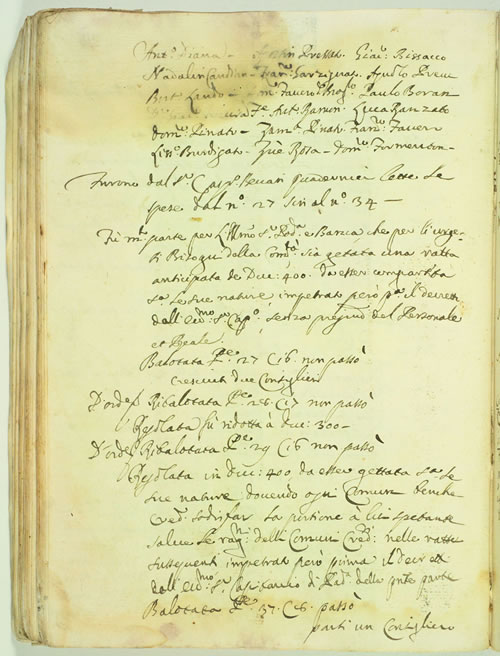 Ant:º Diana - Giac: Bissacco
Nadalin Candian - Fran:
Bort: Lando - Paulo Boran
Ant:º Ramon Luca Ranzato
Dom:º Pinato - Zam:ª Pinato Fran:º Favero
Zuè Rosa - Dom:º Formenton -
Furono dal S:r Gasp:º Pecari Quadernier lette le
spese dal nº: 27 sin al nº: 34 -
Fù m:ª parte per l'Illmo S:r Pod:à e Banca, che per li urge:
ti bisogni della Com:tà sia getata una ratta
anticipata de Duc: 400. da esser compartita
s:a le sue nature, impetrato però p:a il decreto
dall'ecc:mo S:r Cap:º, senza pregiud: del Personale
et Reale:
Balotata P:e 27 C 16. non passò
cresciuti due Consiglieri
D'orde: Ribalotata P:e 26 C 17 non passò
Regolata fù ridotta a duc: 300 -
D'orde: Ribalotata P:e 29 C 16 non passò
Regolata in duc: 400 da esser gettata s:a le
sue nature dovendo ogni Comun benche
Cred: sodisfar la portione à lui spetante
salve le rag:ni delli Comuni Cred: nelle ratte
susseguenti impetrato però prima il decreto
dall'ecc:mo S:r Capitanio di Pad:a della pnte parte
Balotata P:e 37. C 6. passò
partì un Consigliero